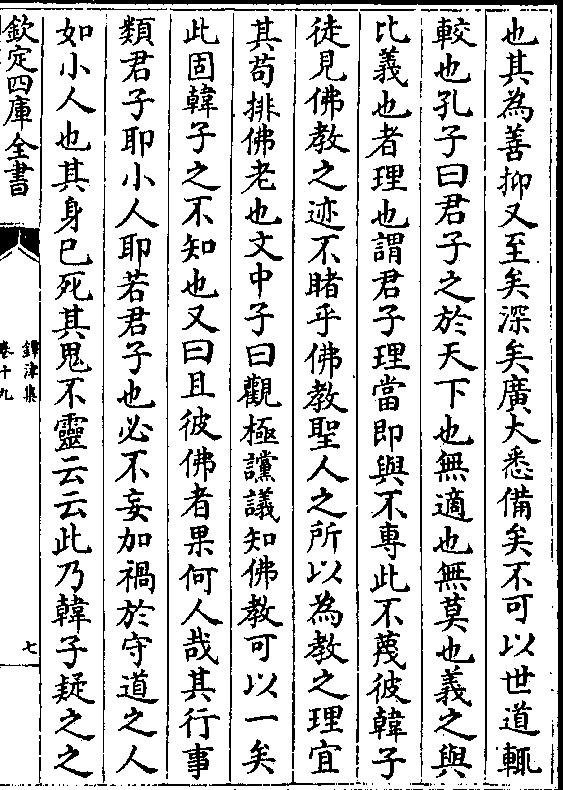 也其為善抑又至矣深矣廣大悉備矣不可以世道輒
較也孔子曰君子之於天下也無適也無莫也義之與
比義也者理也謂君子理當即與不專此不蔑彼韓子
徒見佛教之迹不睹乎佛教聖人之所以為教之理宜
其苟排佛老也文中子曰觀極讜議知佛教可以一矣
此固韓子之不知也又曰且彼佛者果何人哉其行事
類君子耶小人耶若君子也必不妄加禍於守道之人
如小人也其身已死其鬼不靈云云此乃韓子疑之之
欽定四庫全書
鐔津集
卷十九
七